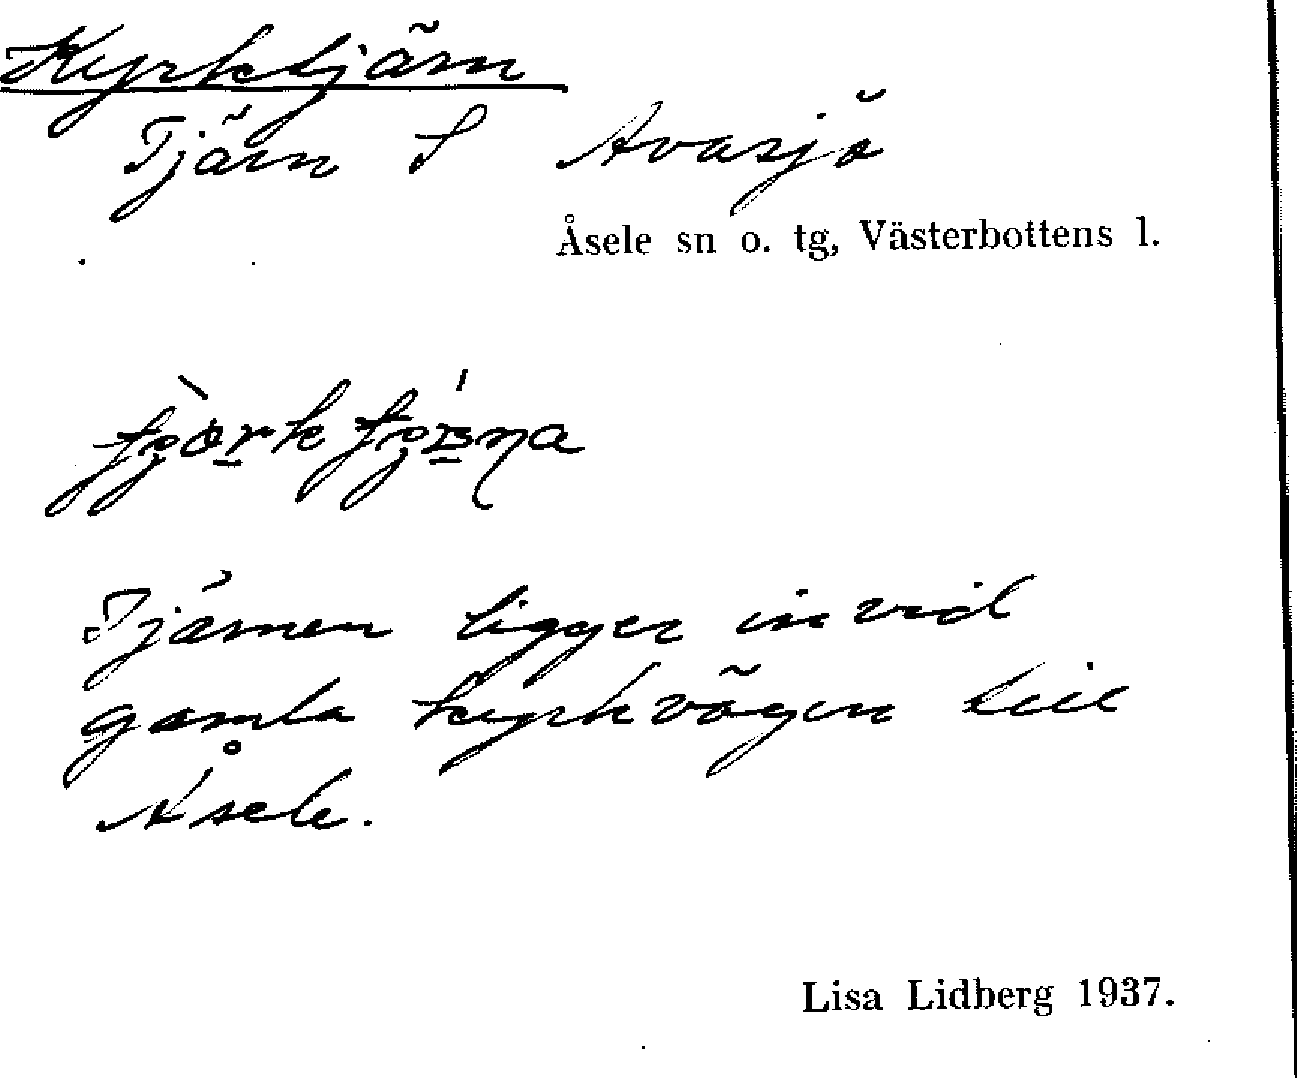 Kyrktjärn
Tjärn S Avasjö
Åsele sn o. tg, Västerbottens l.
Tjärnen ligger invid
gamla kyrkvägen till
Åsele.
Lisa Lidberg 1937.